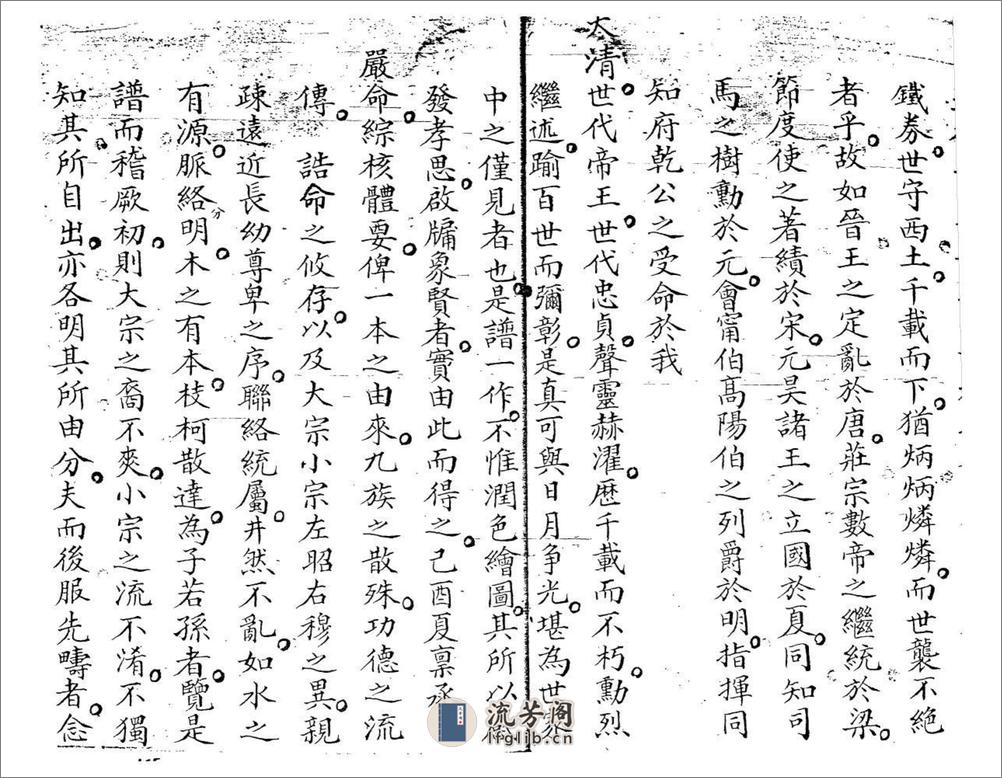 鐵券世守西土千載而下猶炳炳燐燐而世襲不絕
者乎故如晉王之定亂於唐莊宗數帝之繼統於梁
節度使之著績於宋元昊諸王之立國於夏同知司
馬之樹勳於元會甯伯高陽伯之列爵於明指揮同
知府乾公之受命於我
太清世代帝王世代忠貞聲靈赫濯歷千載而不朽勳烈
繼述踰百世而彌彰是真可與日月争光堪為世
中之僅見者也是譜一作不惟潤色繪圖其所以
發孝思啟牖象賢者實由此而得之己酉夏禀承
嚴命綜核體要俾一本之由來九族之散殊功德之流
傳誥命之攸存以及大宗小宗左昭右穆之異親
疎遠近長幼尊卑之序聯絡統屬井然不亂如水之
有源脈絡分明木之有本枝柯散達為子若孫者覽是
譜而稽厥初則大宗之裔不爽小宗之流不淆不獨
知其所自出亦各明其所由分夫而後服先疇者念
流芳阁
lfglib.cn